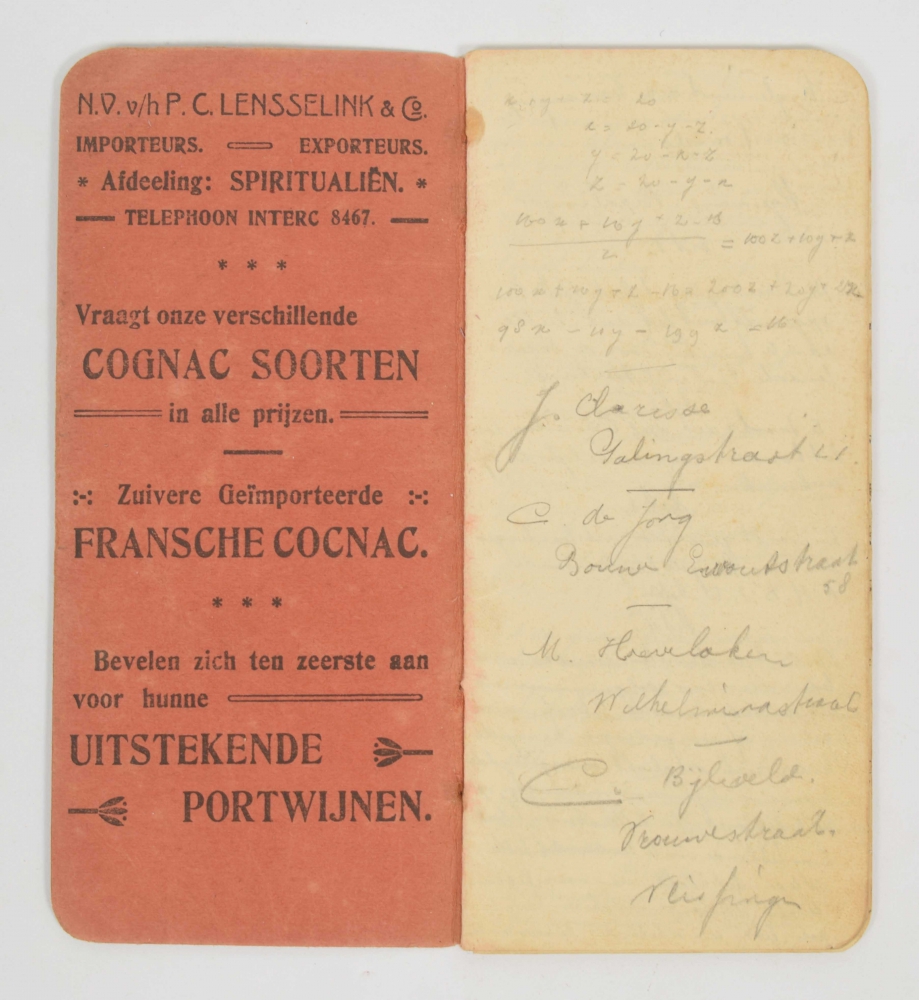 N.V. v/h P. C. LENSSELINK & Co.
IMPORTEURS. EXPORTEURS.
* Afdeeling: SPIRITUALIËN. *
TELEPHOON INTERC 8467.
* * *
Vraagt onze verschillende
COGNAC SOORTEN
in alle prijzen.
:-: Zuivere Geïmporteerde :-:
FRANSCHE COCNAC.
* * *
Bevelen zich ten zeerste aan
voor hunne
UITSTEKENDE
PORTWIJNEN.
x = 20 - y - z
y = 20 - x - z
z = 20 - y - x
= 100z + 10y + x
J. Clarisse
C. de Jong
58
M.
Wilhelminastraat
C. Bijleveld.
Vrouwestraat.
Vlissingen